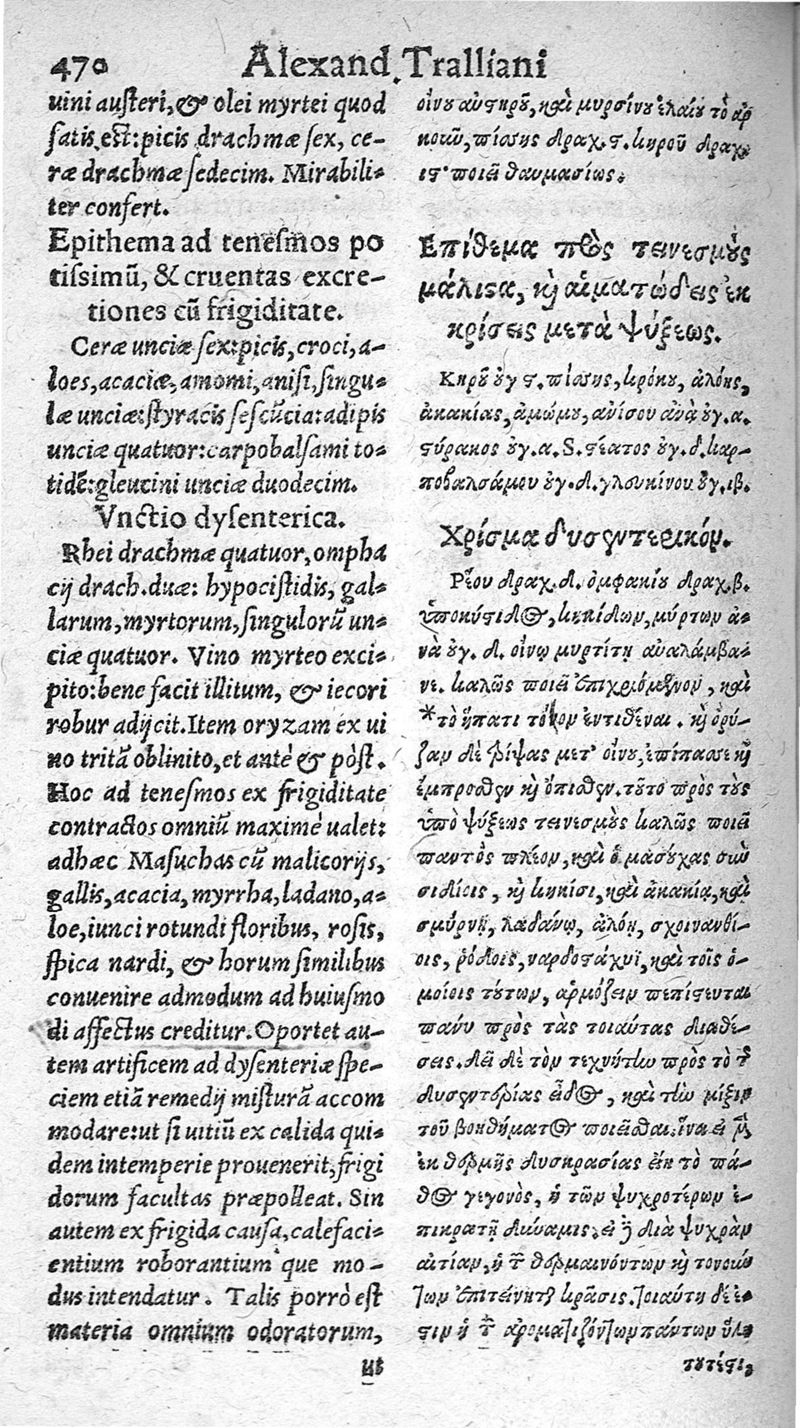 470 Alexand. Tralliani
uini austeri, & olei myrtei quod
satis est: picis drachmæ sex, ce-
ræ drachmæ sedecim. Mirabili-
ter confert.
Epithema ad tenesmos po
tissimũ, & cruentas excre-
tiones cũ frigiditate.
Ceræ unciæ sex: picis, croci, a-
loes, acaciæ, amomi, anisi, singu-
læ unciæ: styracis sescũcia: adipis
unciæ quatuor: carpobalsami to-
tidẽ: gleucini unciæ duodecim.
Vnctio dysenterica.
Rhei drachmæ quatuor, ompha
cij drach. duæ: hypocistidis, gal-
larum, myrtorum, singulorũ un-
ciæ quatuor. Vino myrteo exci-
pito: bene facit illitum, & iecori
robur adijcit. Item oryzam ex ui
no tritã oblinito, et antè & pòst.
Hoc ad tenesmos ex frigiditate
contractos omniũ maximè ualet:
adhæc Masuchas cũ malicorijs,
gallis, acacia, myrrha, ladano, a-
loe, iunci rotundi floribus, rosis,
spica nardi, & horum similibus
conuenire admodum ad huiusmo
di affectus creditur. Oportet au-
tem artificem ad dysenteriæ spe-
ciem etiã remedij misturã accom
modare: ut si uitiũ ex calida qui-
dem intemperie prouenerit, frigi
dorum facultas præpolleat. Sin
autem ex frigida causa, calefaci-
entium roborantium que mo-
dus intendatur. Talis porrò est
materia omnium odoratorum,
ut
οἴνου αὐστηροῦ, καὶ μυρσίνου ἐλαίου τὸ ἀρ
κοῦν, πίσσης δραχ. ϛ. κηροῦ δραχ.
ιϛ· ποιεῖ θαυμασίως.
Επίθεμα πρὸς τεινεσμοὺς
μάλιστα, καὶ αἱματώδεις ἐκ
κρίσεις μετὰ ψύξεως.
Κηροῦ ουγ ϛ. πίσσης, κρόκου, ἀλόης,
ἀκακίας, ἀμώμου, ἀνίσου ἀνὰ ουγ. α.
στύρακος ουγ. α. S. στέατος ουγ. δ. καρ-
ποβαλσάμου ουγ. δ. γλευκίνου ουγ. ιβ.
Χρίσμα δυσεντερικόν.
Ρέου δραχ. δ. ὀμφακίου δραχ. β.
ὑποκύστιδος, κηκίδων, μύρτων ἀ-
νὰ ουγ. δ. οἴνῳ μυρτίτῃ ἀναλάμβα-
νε. καλῶς ποιεῖ ἐπιχριόμενον, καὶ
*τὸ ἥπατι τόνον ἐντιθέναι. καὶ ὀρύ-
ζαν δὲ τρίψας μετ' οἴνου, ἐπίπασσε καὶ
ἔμπροσθεν καὶ ὄπισθεν. τοῦτο πρὸς τοὺς
ὑπὸ ψύξεως τεινεσμοὺς καλῶς ποιεῖ
παντὸς πλέον, καὶ ὁ μασούχας σὺν
σιδίοις, καὶ κηκῖσι, καὶ ἀκακίᾳ, καὶ
σμύρνῃ, λαδάνῳ, ἀλόῃ, σχοινανθί-
οις, ῥόδοις, ναρδοστάχυϊ, καὶ τοῖς ὁ-
μοίοις τούτων, ἁρμόζειν πεπίστευται
πάνυ πρὸς τὰς τοιαύτας διαθέ-
σεις. Δεῖ δὲ τὸν τεχνήτην πρὸς τὸ τῆς
δυσεντερίας εἶδος, καὶ τὴν μίξιν
τοῦ βοηθήματος ποιεῖσθαι. ἵνα εἰ μὲν
ἐκ θερμῆς δυσκρασίας εἴη τὸ πά-
θος γεγονὸς, ἡ τῶν ψυχροτέρων ἐ-
πικρατῇ δύναμις. εἰ δὲ διὰ ψυχρὰν
αἰτίαν, ἡ τῶν θερμαινόντων καὶ τονούν
των ἐπιτείνηται κρᾶσις. τοιαύτη δέ ἐ-
στιν ἡ τῶν ἀρωματιζόντων πάντων ὕλη
τουτέστι,